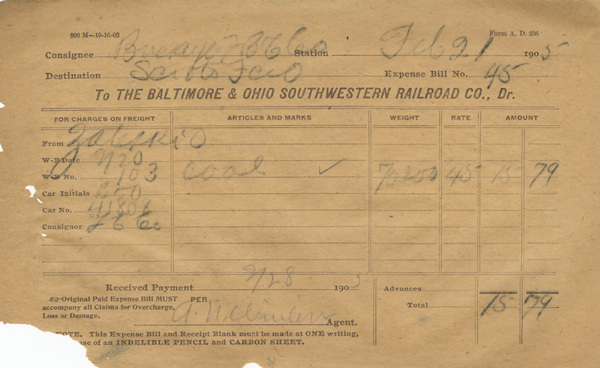 800 M—10-16-03 Form A. D. 256
Consignee Station Feb 21 1905
Destination Scioto Expense Bill No. 45
To THE BALTIMORE & OHIO SOUTHWESTERN RAILROAD CO., Dr.
FOR CHARGES ON FREIGHT ARTICLES AND MARKS WEIGHT RATE AMOUNT
From Zaleski O.
W-B Date 2/20
W-B No. 103 coal ✓ 70250 45 15 79
Car Initials B&O
Car No.
Consignor
Received Payment 2/28 1905 Advances
Original Paid Expense Bill MUST PER Total 15 79
accompany all Claims for Overcharge,
Loss or Damage. Agent.
NOTE. This Expense Bill and Receipt Blank must be made at ONE writing,
use of an INDELIBLE PENCIL and CARBON SHEET.